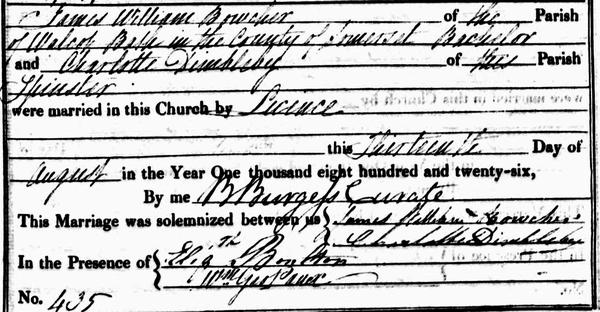 James William Bowcher of the Parish
of Walcot Bath in the County of Somerset Bachelor
and Charlotte Dimbleby of this Parish
Spinster
were married in this Church by Licence
this Thirteenth Day of
August in the Year One thousand eight hundred and twenty-six,
By me B Burgess Curate
This Marriage was solemnized between us { James William Bowcher
Charlotte Dimbleby
In the Presence of { Eliz.th Boulton
Wm Geo
No. 435